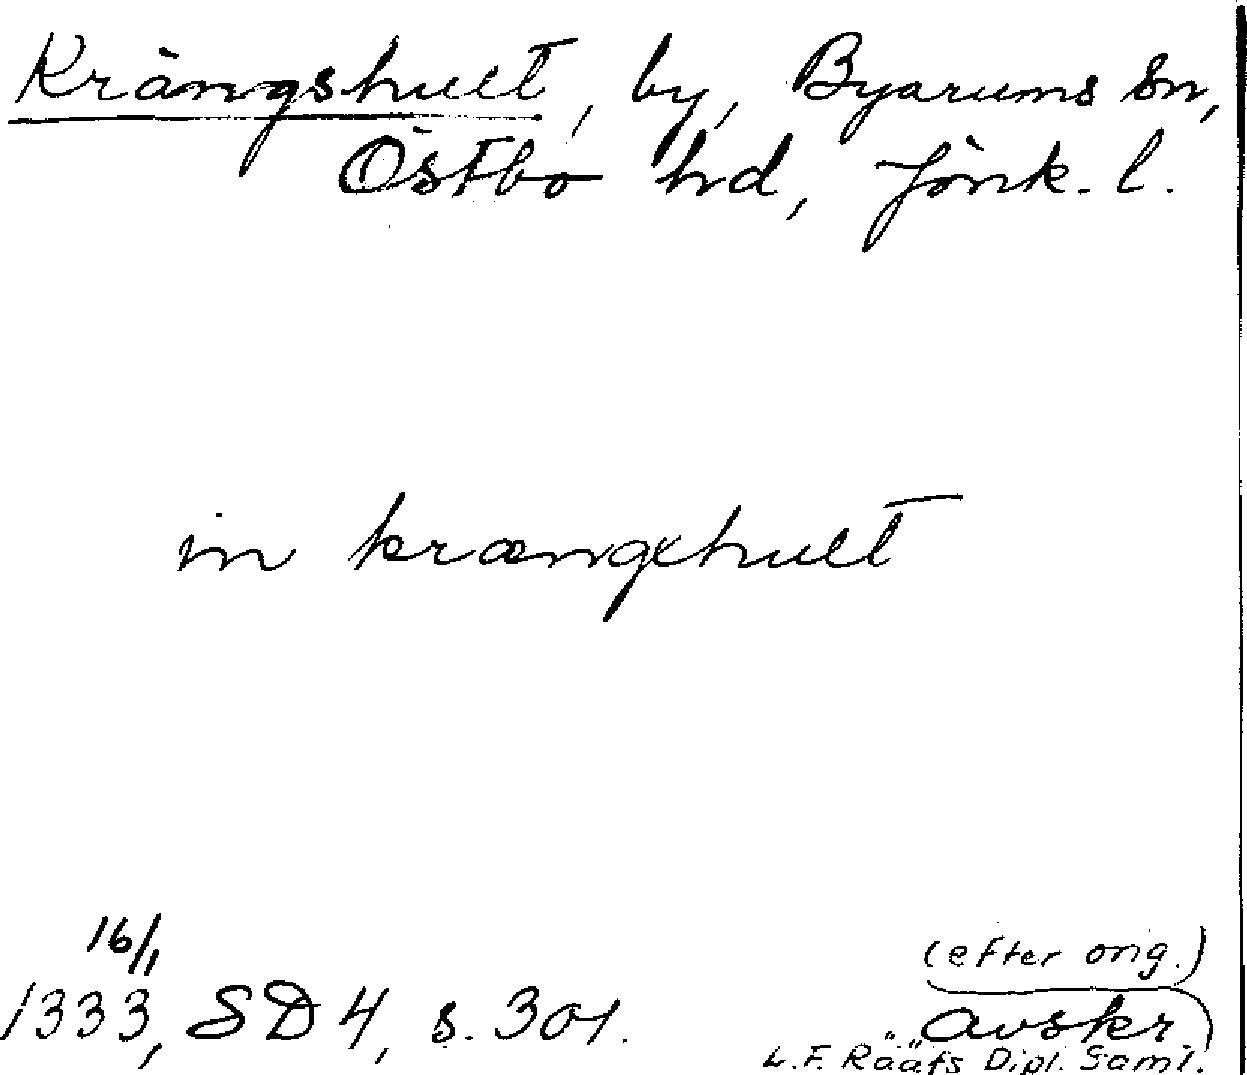 Krängshult, by, Byarums sn,
Östbo hd, Jönk. l.
in krængxhult
16/1
1333, SD 4, s. 301.
(efter orig.)
avskr
L.F. Rääfs Dipl. Saml.